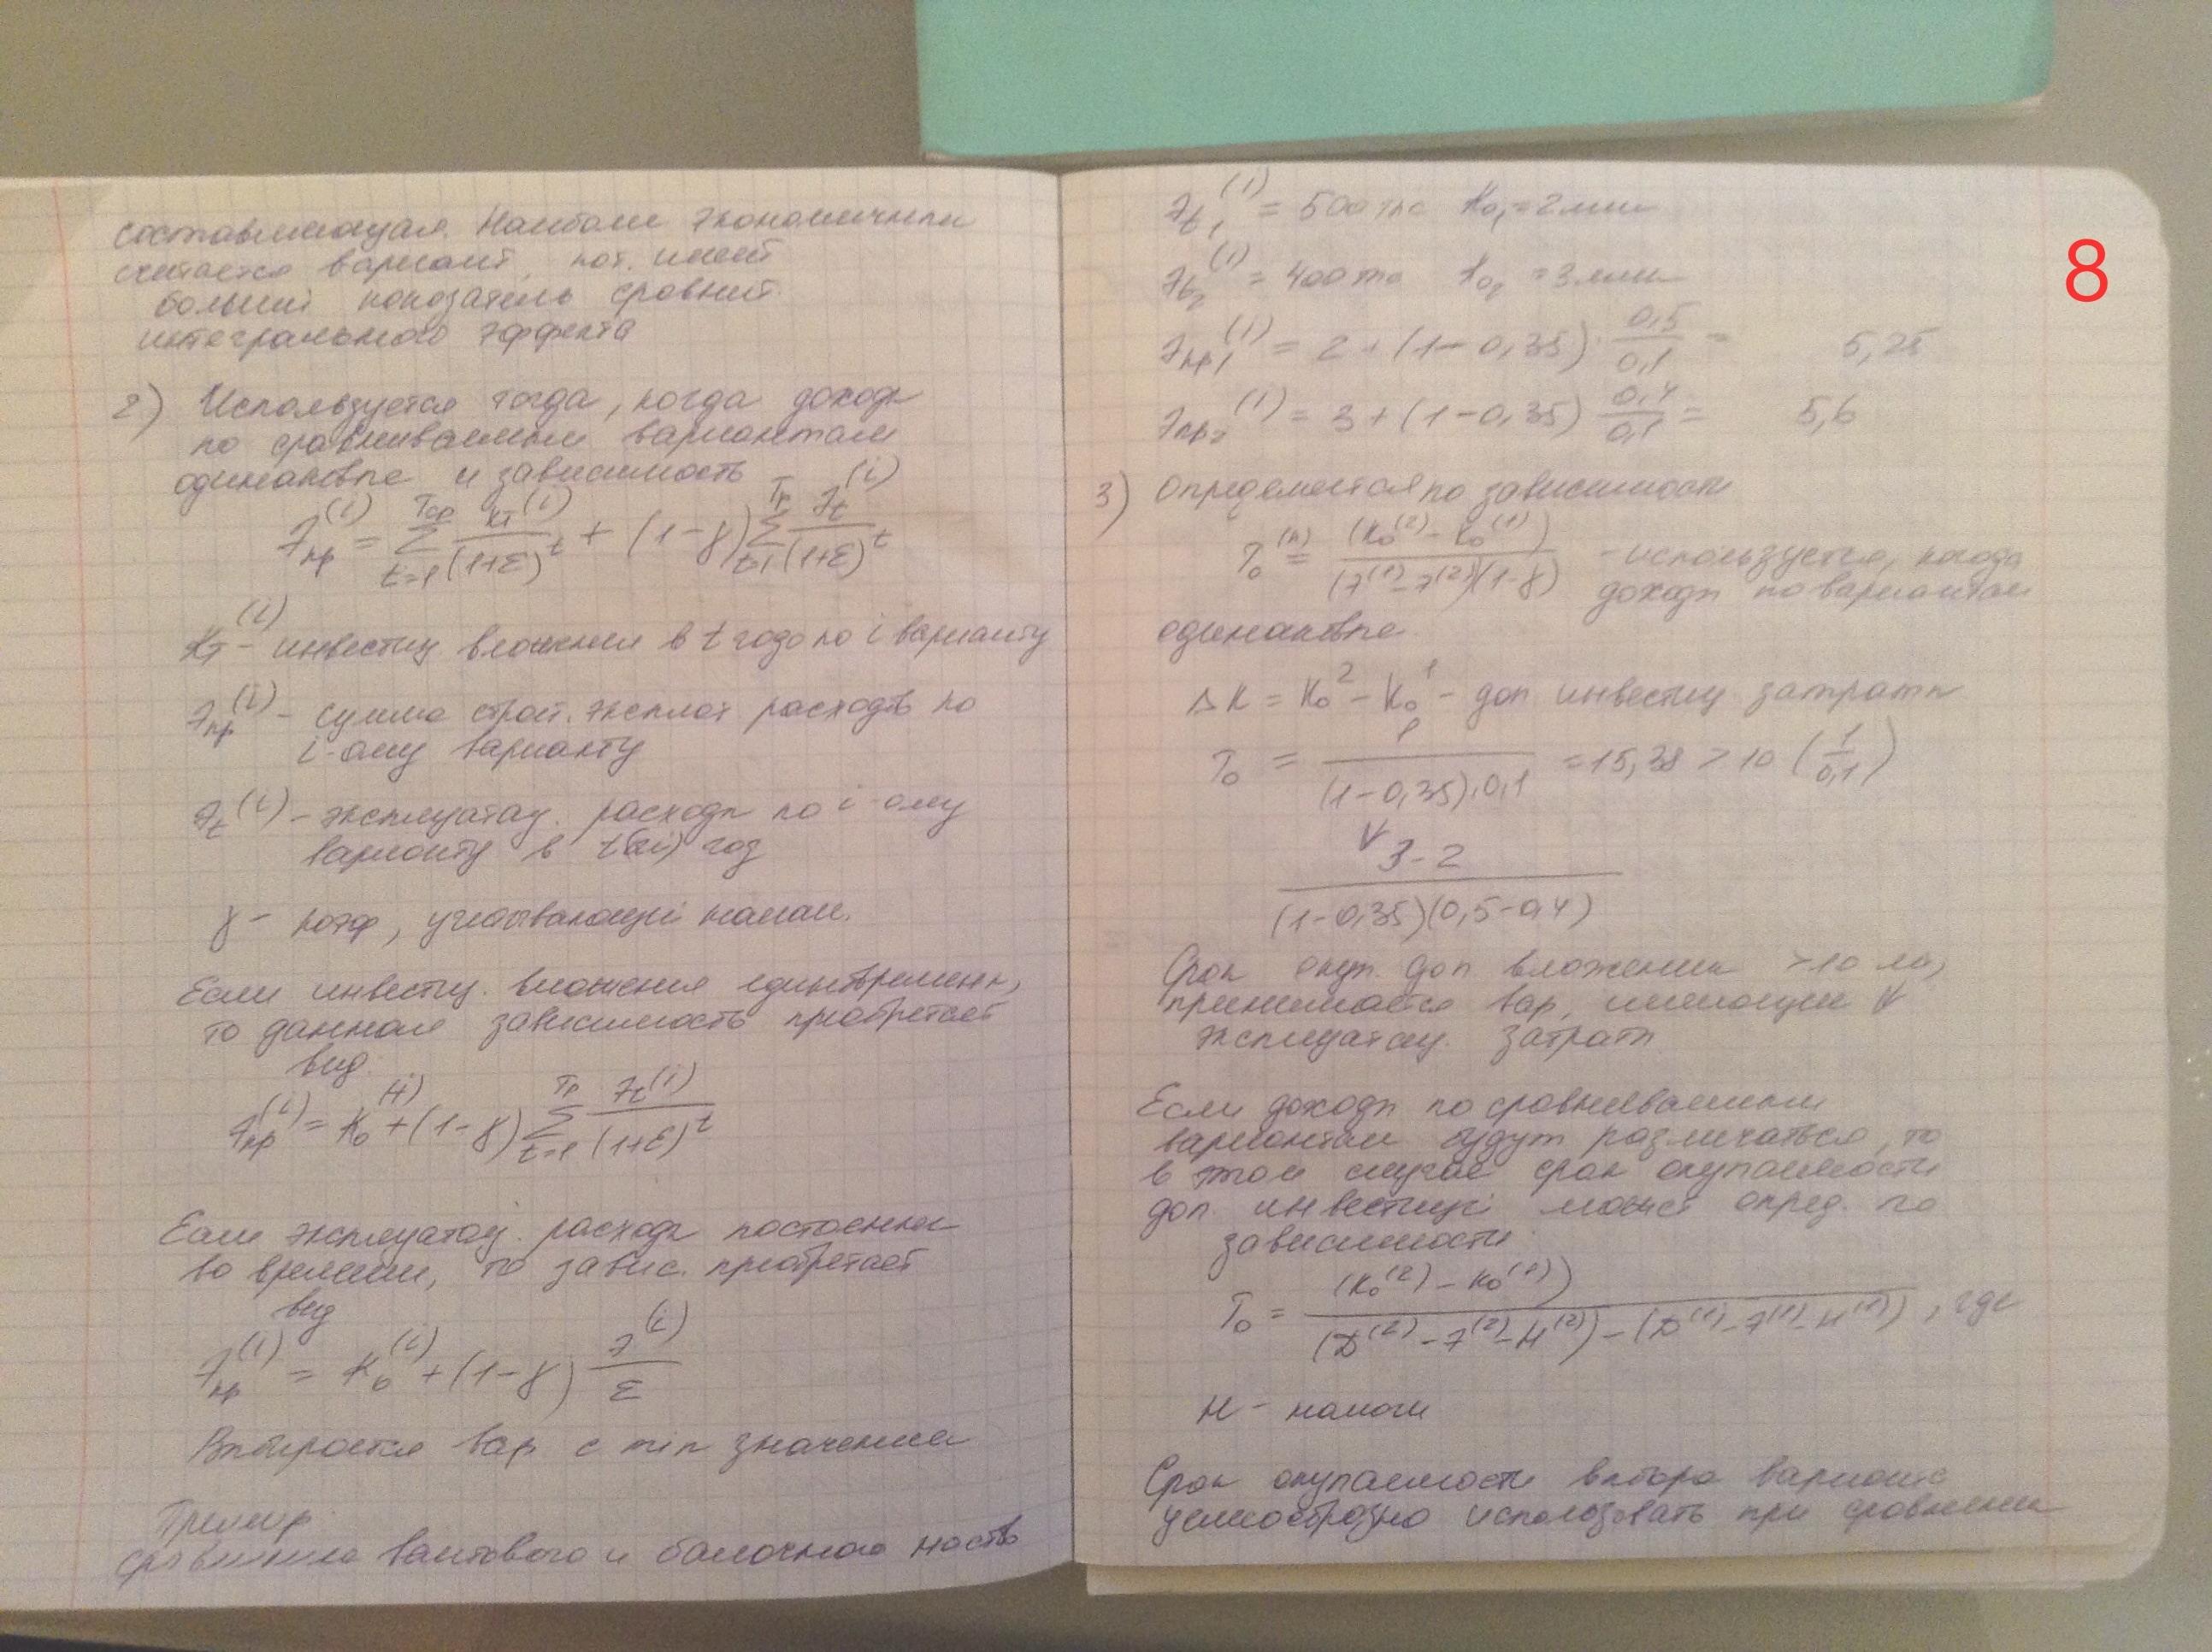 составляющая. Наиболее экономичным
считается вариант, кот. имеет
больший показатель сравнит.
интегрального эффекта
2) Используется тогда, когда доходы
по сравниваемым вариантам
одинаковые и зависимость
Э_пр^(i) = Σ_{t=1}^{Tср} K_T^(i)/(1+ε)^t + (1-γ) Σ_{t=1}^{Tр} Э_t^(i)/(1+ε)^t
K_T^(i) - инвестиц вложения в t году по i варианту
Э_пр^(i) - сумма строит. эксплот расходов по
i-ому варианту
Э_t^(i) - эксплуатац. расходы по i-ому
варианту в t год
γ - коэф, учитывающий налог.
Если инвестиц. вложения единовременны,
то данная зависимость приобретает
вид:
Э_пр^(i) = K_0^(i) + (1-γ) Σ_{t=1}^{Tр} Э_t^(i)/(1+ε)^t
Если эксплуатац. расходы постоянны
во времени, то завис. приобретает
вид
Э_пр^(i) = K_0^(i) + (1-γ) Э^(i)/ε
Выбирается вар. с min значением
Пример:
сравнение вантового и балочного моста
Э_t1^(1) = 500 тыс K_01 = 2 млн
Э_t2^(1) = 400 тыс K_02 = 3 млн
Э_пр1^(1) = 2 + (1-0,35) · 0,5/0,1 = 5,25
Э_пр2^(1) = 3 + (1-0,35) 0,4/0,1 = 5,6
3) Определяется по зависимости
T_0^(н) = (K_0^(2) - K_0^(1))/((Э^(1) - Э^(2))(1-γ)) - используется, когда
доходы по вариантам
одинаковые.
ΔK = K_0^2 - K_0^1 - доп инвестиц затраты
T_0 = 1/((1-0,35)·0,1) = 15,38 > 10 (1/0,1)
3-2/((1-0,35)(0,5-0,4))
Срок окуп. доп вложения >10 лет,
принимается вар, имеющий ∀
эксплуатац. затраты
Если доходы по сравниваемым
вариантам будут различаться, то
в этом случае срок окупаемости
доп. инвестиций может опред. по
зависимости:
T_0 = (K_0^(2) - K_0^(1))/((D^(2) - Э^(2) - H^(2)) - (D^(1) - Э^(1) - H^(1))), где
H - налоги
Срок окупаемости выбора варианта
целесообразно использовать при сравнении
8